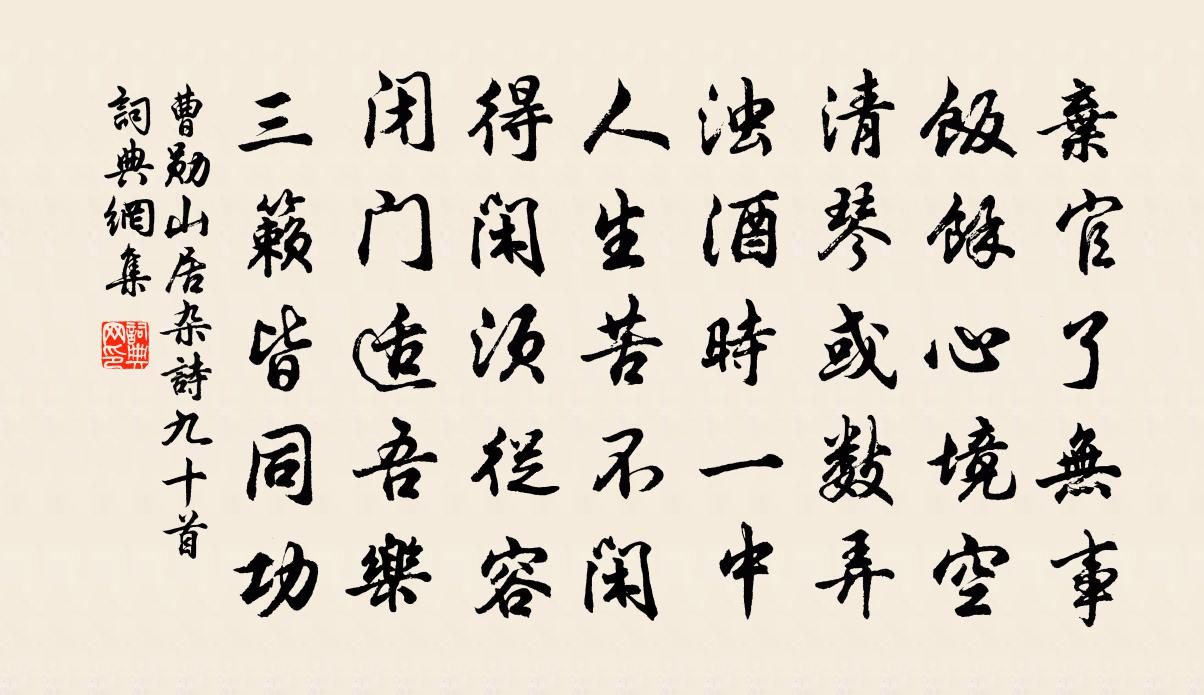 棄官了無事
飯餘心境空
清琴或数弄
浊酒時一中
人生苦不闲
得闲须從容
闭门适吾樂
三籟皆同功
曹勋山居杂詩九十首
詞典網集
詞典网印